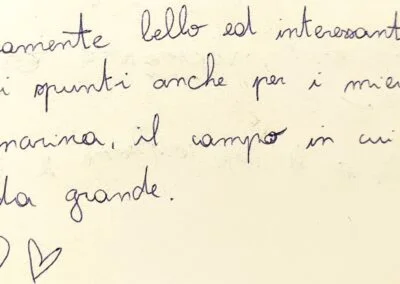 amente bello ed interessant
i spunti anche per i miei
marina, il campo in cui
da grande.